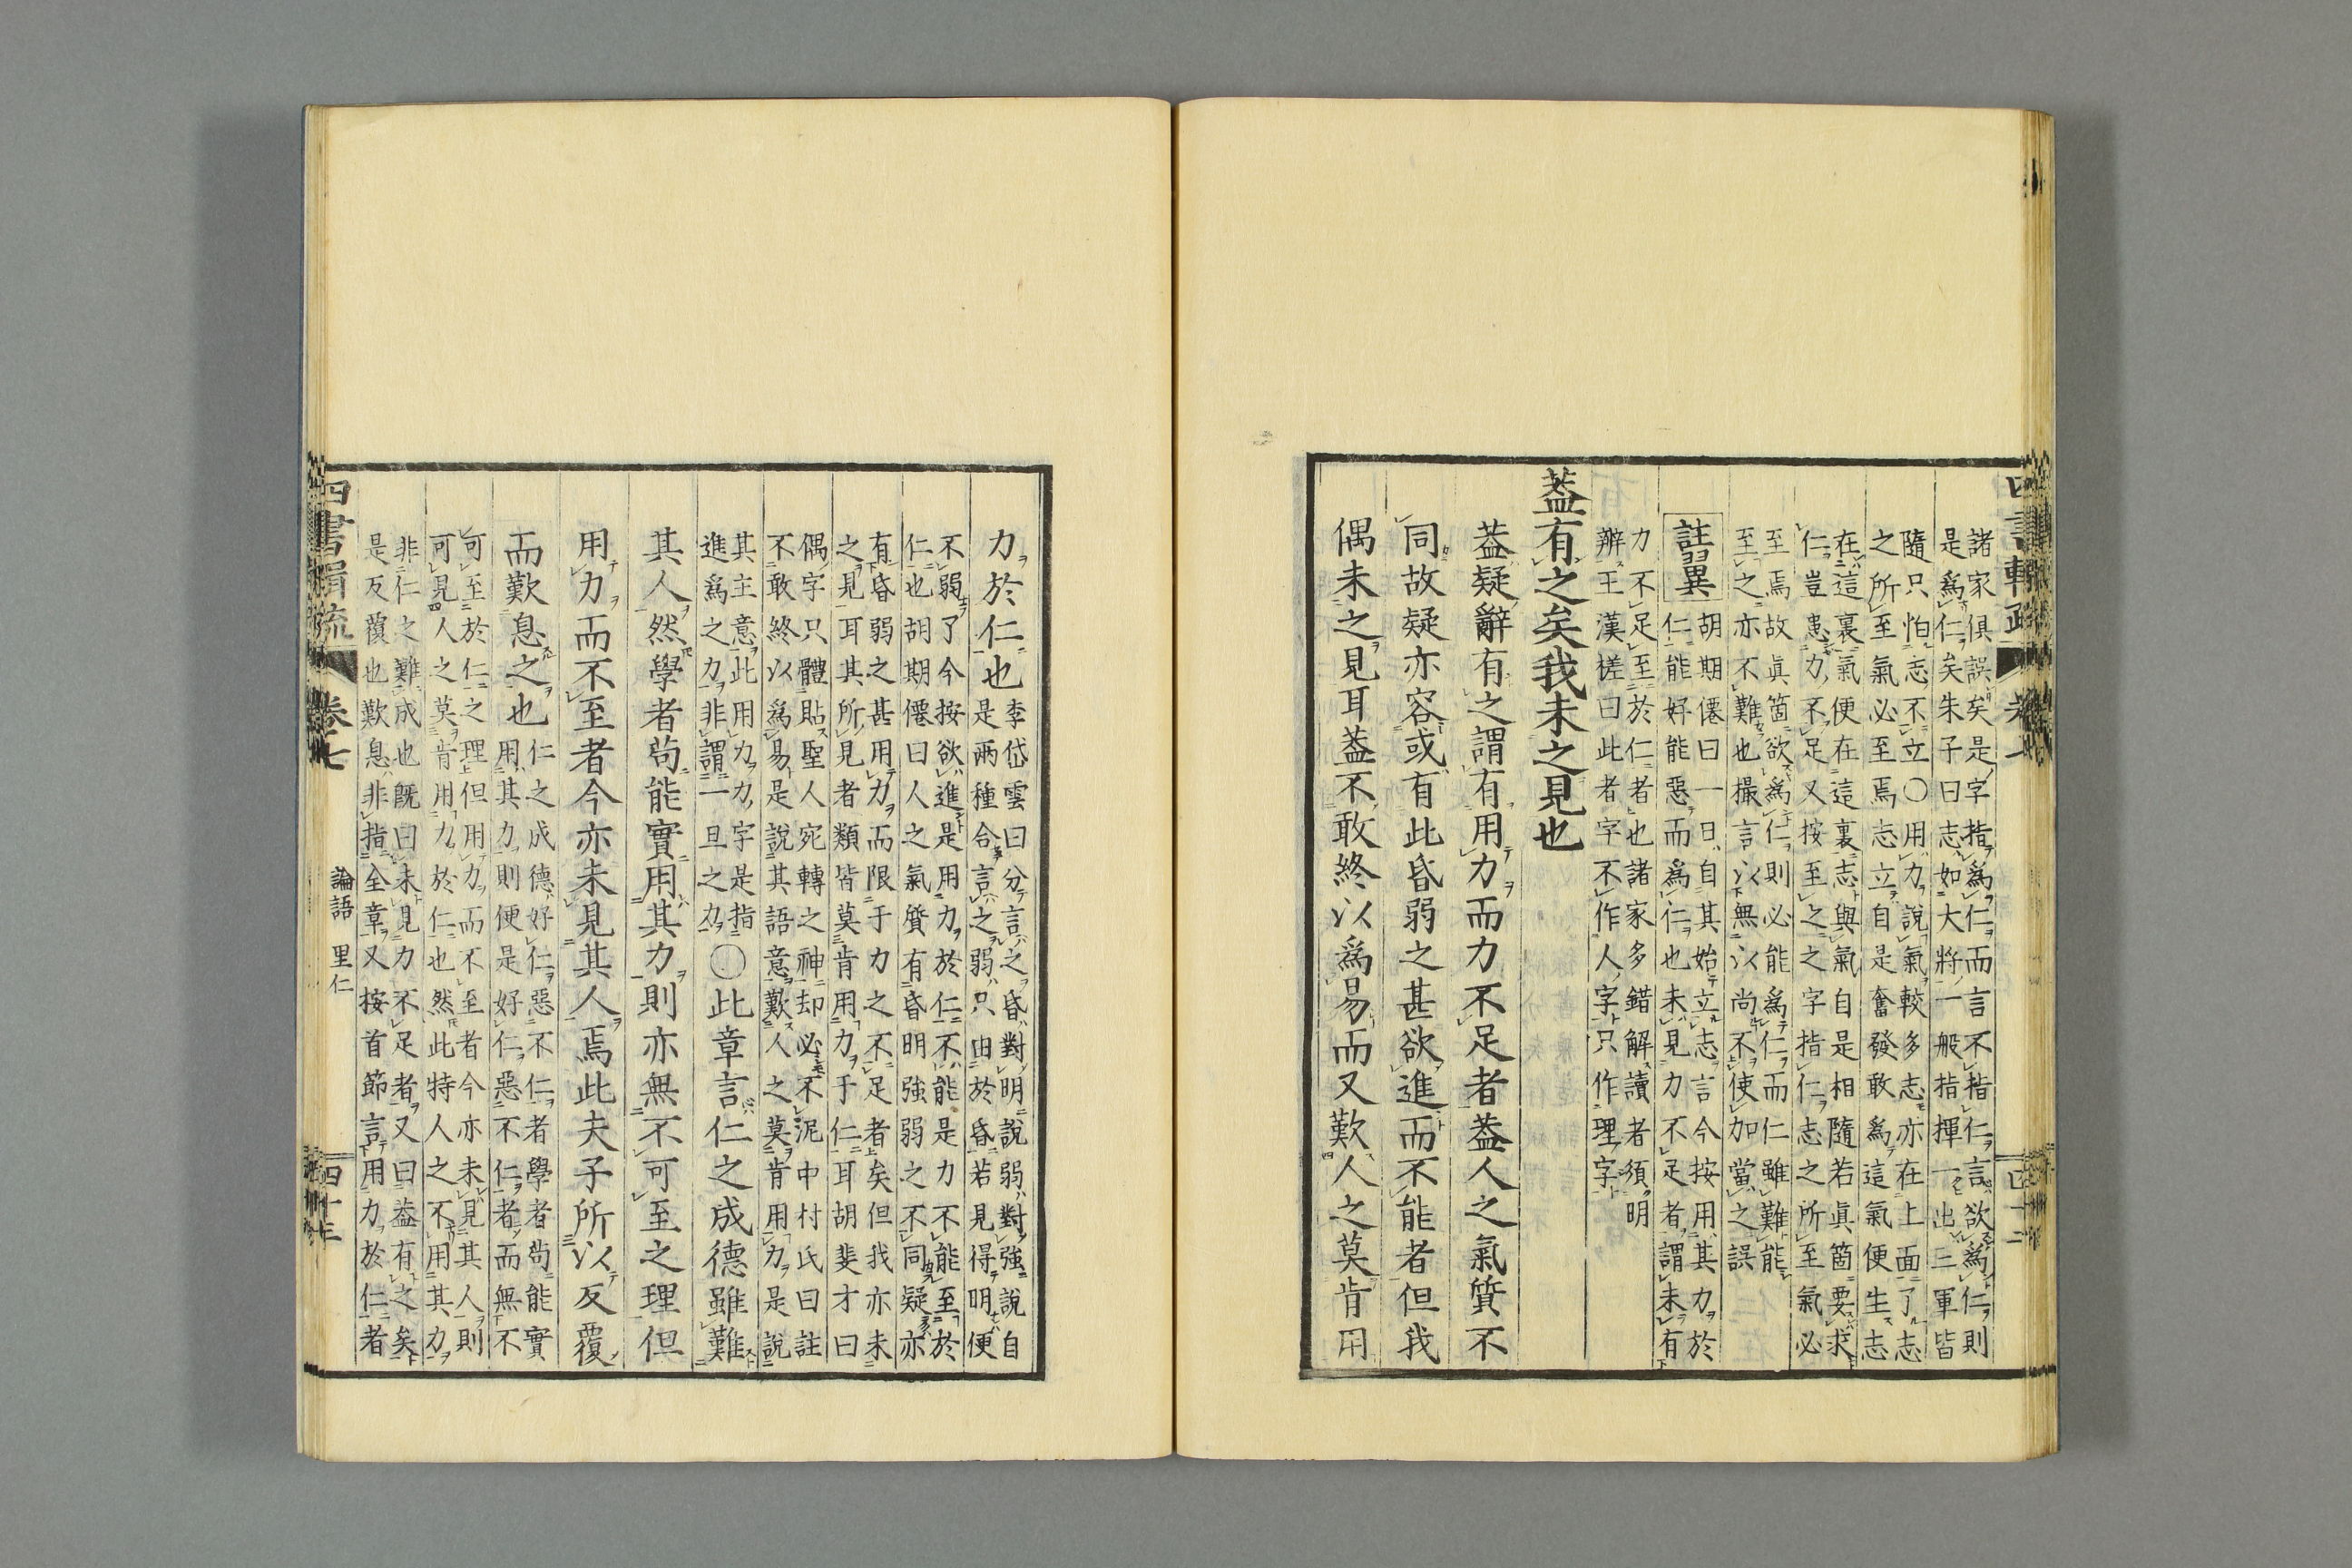 諸家俱誤矣是字指爲仁而言不指仁言欲爲仁則
是爲仁矣朱子曰志如大將一般指揮一出三軍皆
隨只怕志不立○用力說氣較多志亦在上面了志
之所至氣必至焉志立自是奮發敢爲這氣便生志
在這裏氣便在這裏志與氣自是相隨若眞箇要求
仁豈患力不足又按至之之字指仁志之所至氣必
至焉故眞箇欲爲仁則必能爲仁而仁雖難能
至之亦不難也撮言以無以尚不使加當之誤
註異
胡期僊曰一日自其始立志言今按用其力於
仁能好能惡而爲仁也未見力不足者謂未有
力不足至於仁者也諸家多錯解讀者須明
辯王漢槎曰此者字不作人字只作理字
蓋有之矣我未之見也
蓋疑辭有之謂有用力而力不足者蓋人之氣質不
同故疑亦容或有此昏弱之甚欲進而不能者但我
偶未之見耳蓋不敢終以爲易而又歎人之莫肯用
力於仁也
李岱雲曰分言之昏對明說弱對強說自
是兩種合言之弱只由於昏若見得明便
不弱了今按欲進是用力於仁不能是力不能至於
仁也胡期僊曰人之氣質有昏明強弱之不同疑亦
有昏弱之甚用力而限于力之不足者矣但我亦未
之見耳其所見者類皆莫肯用力于仁耳胡斐才曰
偶字只體貼聖人宛轉之神却必不泥中村氏曰註
不敢終以爲易是說其語意歎人之莫肯用力是說
其主意此用力力字是指
進爲之力非謂一旦之力
○此章言仁之成德雖難
其人然學者苟能實用其力則亦無不可至之理但
用力而不至者今亦未見其人焉此夫子所以反覆
而歎息之也
仁之成德好仁惡不仁者學者苟能實
用其力則便是好仁惡不仁者而無不
可至於仁之理但用力而不至者今亦未見其人則
可見人之莫肯用力於仁也然此特人之不用其力
非仁之難成也旣曰未見力不足者又曰蓋有之矣
是反覆也歎息非指全章又按首節言用力於仁者
四書輯疏 卷七 論語 里仁 四十三